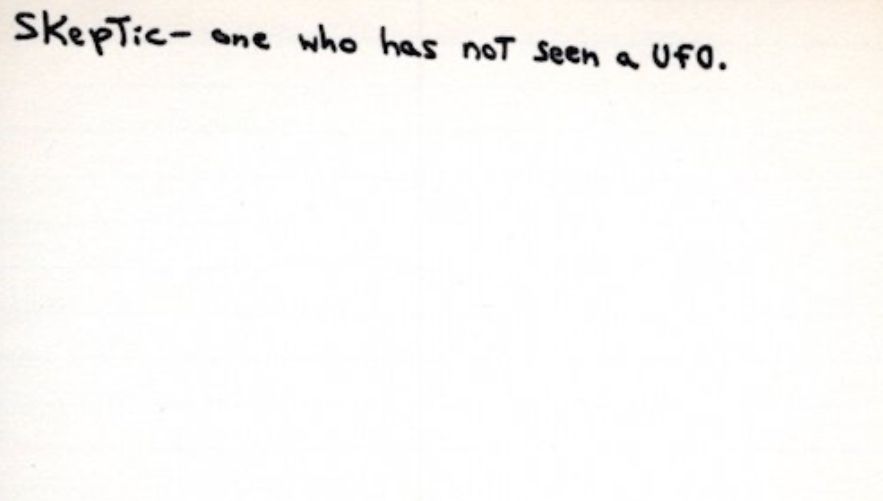 SKepTic- one who has noT seen a UfO.